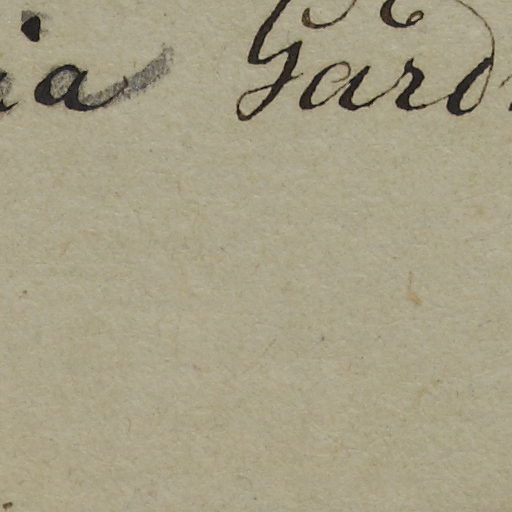 ia Gard